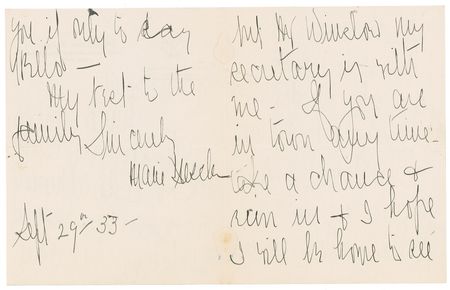 but Mr Winslow my
secretary is with
me - If you are
in town any time -
take a chance &
run in & I hope
I will be home to see
you if only to say
Hello -
My best to the
family Sincerely
Marie
Sept 29th 33 -